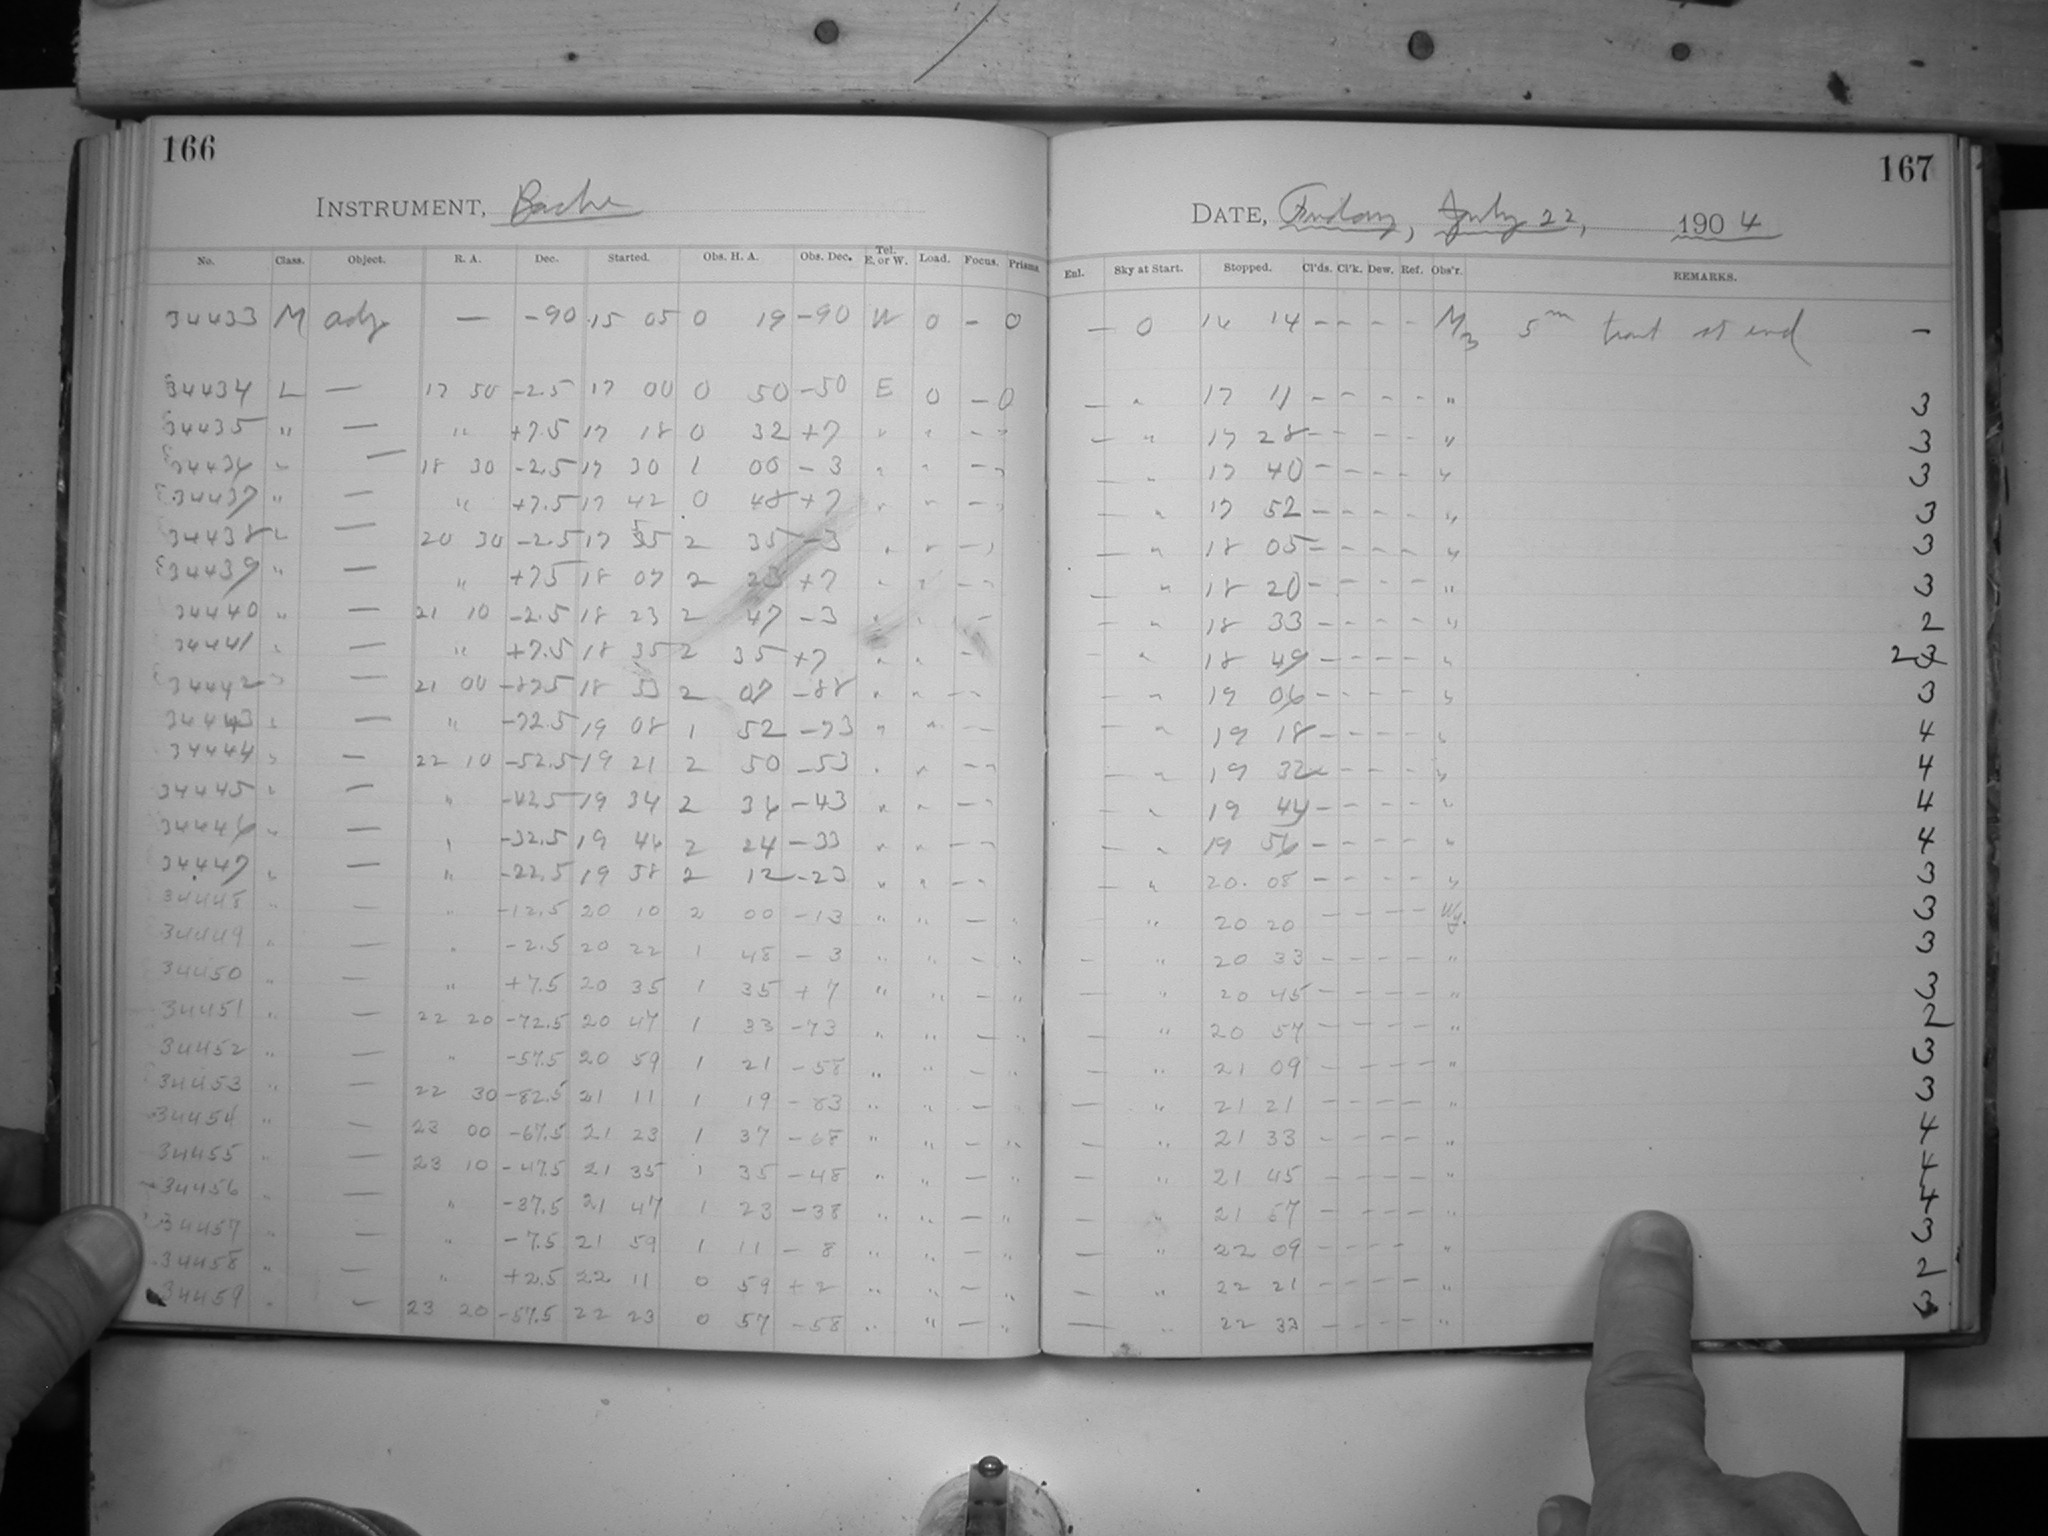 166
INSTRUMENT, Bache
No. Class. Object. R. A. Dec. Started. Obs. H. A. Obs. Dec. Tel. E. or W. Load. Focus. Prisms.
34433 M adj. — -90 15 05 0 19 -90 W 0 - 0
34434 L — 17 50 -2.5 17 00 0 50 -50 E 0 - 0
34435 " — " +7.5 17 18 0 32 +7 " " - "
34436 " — 18 30 -2.5 17 30 1 00 -3 " " - "
34437 " — " +7.5 17 42 0 48 +7 " " - "
34438 L — 20 30 -2.5 17 55 2 35 -3 " " - "
34439 " — " +7.5 18 07 2 23 +7 " " - "
34440 " — 21 10 -2.5 18 23 2 47 -3 " " -
34441 " — " +7.5 18 35 2 35 +7 " " -
34442 " — 21 00 -87.5 18 53 2 07 -88 " " - "
34443 " — " -72.5 19 08 1 52 -73 " " - "
34444 " — 22 10 -52.5 19 21 2 50 -53 " " - "
34445 " — " -42.5 19 34 2 36 -43 " " - "
34446 " — " -32.5 19 46 2 24 -33 " " - "
34447 " — " -22.5 19 58 2 12 -23 " " - "
34448 " — " -12.5 20 10 2 00 -13 " " - "
34449 " — " -2.5 20 22 1 48 -3 " " - "
34450 " — " +7.5 20 35 1 35 +7 " " - "
34451 " — 22 20 -72.5 20 47 1 33 -73 " " - "
34452 " — " -57.5 20 59 1 21 -58 " " - "
34453 " — 22 30 -82.5 21 11 1 19 -83 " " - "
34454 " — 23 00 -67.5 21 23 1 37 -68 " " - "
34455 " — 23 10 -47.5 21 35 1 35 -48 " " - "
34456 " — " -37.5 21 47 1 23 -38 " " - "
34457 " — " -7.5 21 59 1 11 -8 " " - "
34458 " — " +2.5 22 11 0 59 +2 " " - "
34459 " — 23 20 -57.5 22 23 0 57 -58 " " - "
167
DATE, Friday, July 22, 1904
Enl. Sky at Start. Stopped. Cl'ds. Cl'k. Dew. Ref. Obs'r. REMARKS.
— 0 14 - - - - M3 5m trail at end —
— " 17 11 - - - - " 3
— " 17 28 - - - - " 3
" 17 40 - - - - " 3
" 17 52 - - - - " 3
— " 18 05 - - - - " 3
" 18 20 - - - - " 3
— " 18 33 - - - - " 2
— " 18 49 - - - - " 2
— " 19 06 - - - - " 3
— " 19 18 - - - - " 4
— " 19 32 - - - - " 4
— " 19 44 - - - - " 4
— " 19 56 - - - - " 4
— " 20 08 - - - - " 3
" 20 20 - - - - 3
— " 20 33 - - - - " 3
— " 20 45 - - - - " 3
— " 20 57 - - - - " 2
— " 21 09 - - - - " 3
— " 21 21 - - - - " 3
— " 21 33 - - - - " 4
— " 21 45 - - - - " 4
— " 21 57 - - - - " 4
— " 22 09 - - - - " 3
— " 22 21 - - - - " 2
— " 22 33 - - - - " 3